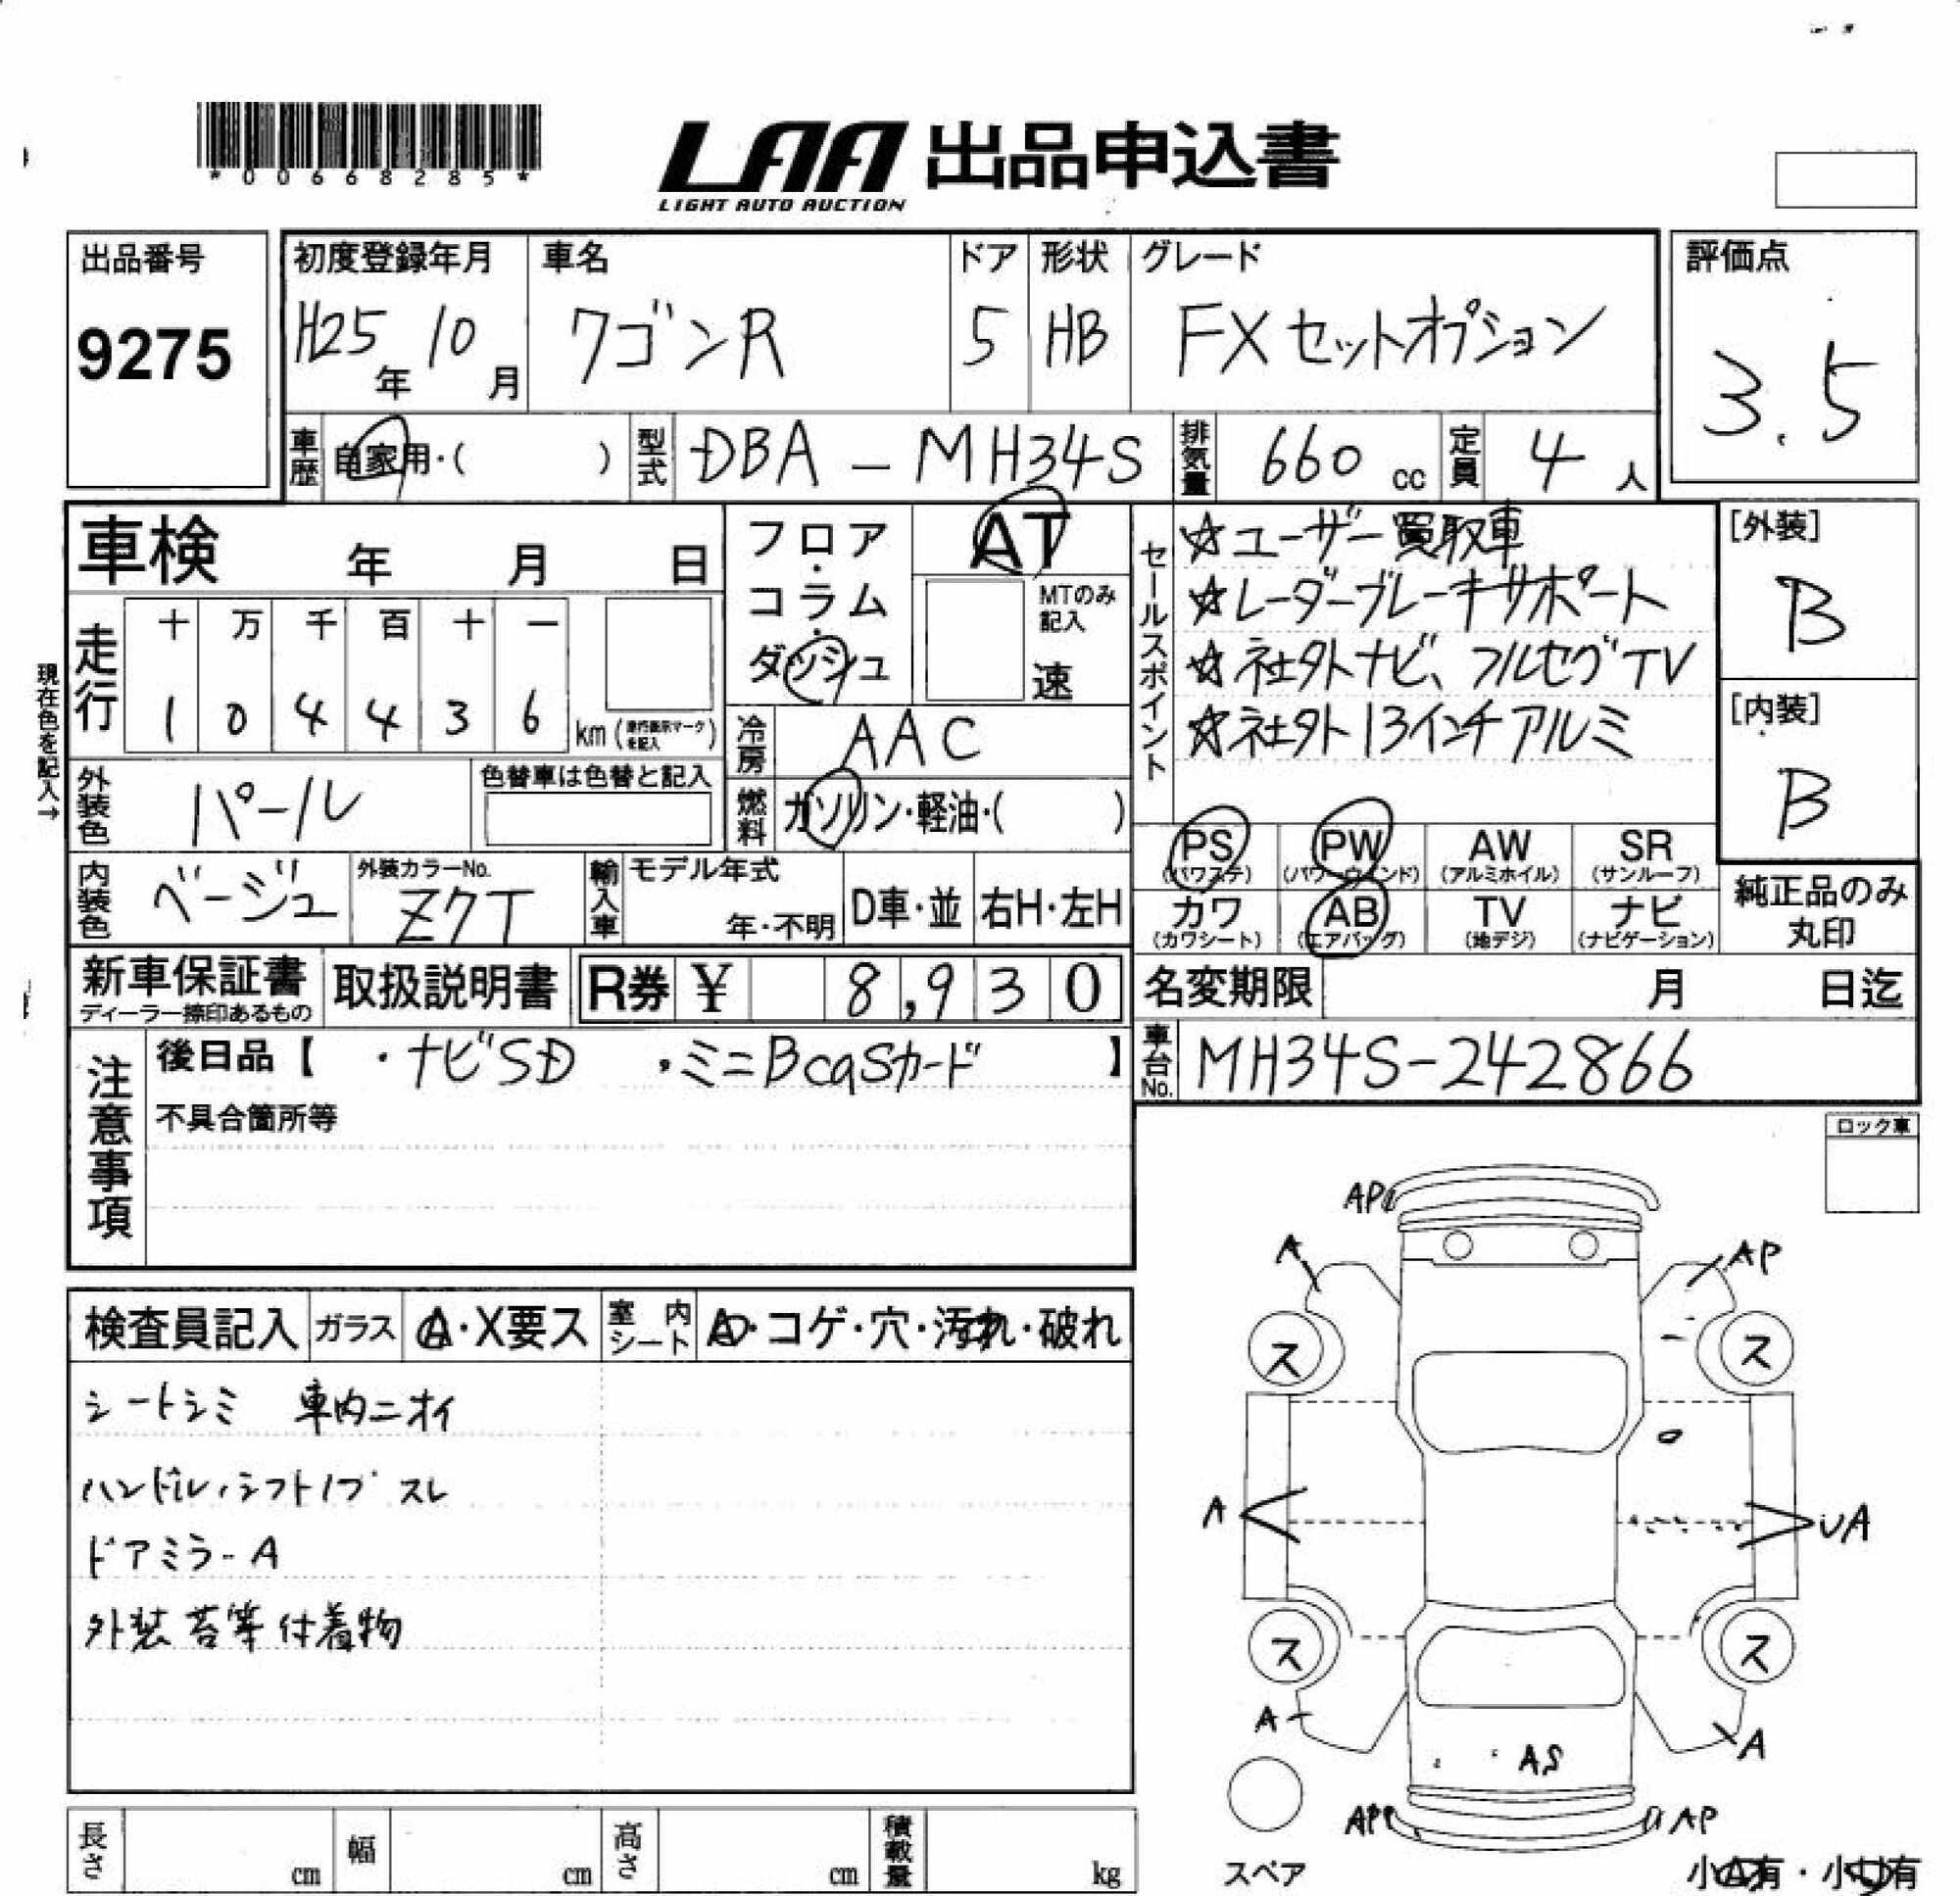 *00668285*
LAA 出品申込書
LIGHT AUTO AUCTION
出品番号
9275
初度登録年月
H25年 10月
車名
ワゴンR
ドア
5
形状
HB
グレード
FXセットオプション
評価点
3.5
車歴 自家用・( )
型式 DBA-MH34S
排気量 660 cc
定員 4 人
車検 年 月 日
フロア・コラム・ダッシュ
AT
MTのみ記入
速
現在色を記入→
走行
十 万 千 百 十 一
1 0 4 4 3 6 km(走行表示マークを記入)
冷房 AAC
外装色 パール
色替車は色替と記入
燃料 ガソリン・軽油・( )
内装色 ベージュ
外装カラーNo.
Z7T
輸入車
モデル年式
年・不明
D車・並
右H・左H
セールスポイント
☆ユーザー買取車
☆レーダーブレーキサポート
☆社外ナビ、フルセグTV
☆社外13インチアルミ
[外装]
B
[内装]
B
PS PW AW SR
(パワステ) (パワーウィンド) (アルミホイル) (サンルーフ)
カワ AB TV ナビ
(カワシート) (エアバッグ) (地デジ) (ナビゲーション)
純正品のみ
丸印
新車保証書
ディーラー捺印あるもの
取扱説明書
R券 ¥ 8,930
名変期限 月 日迄
車台No. MH34S-242866
注意事項
後日品【 ・ナビSD ・ミニBcasカード 】
不具合箇所等
ロック車
検査員記入
ガラス A・X要ス
室内シート A・コゲ・穴・汚れ・破れ
シートシミ 車内ニオイ
ハンドル、シフトノブ スレ
ドアミラーA
外装 苔等 付着物
AP
A
AP
ス
ス
A
UA
ス
ス
A
A
AS
AP
AP
スペア
小A有・小U有
長さ cm
幅 cm
高さ cm
積載量 kg